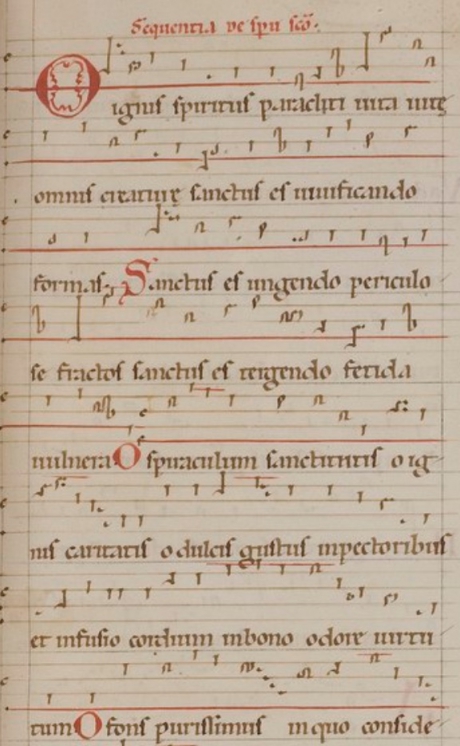 Sequentia de spu sco.
O ignis spiritus paracliti uita uite
omnis creature sanctus es uiuificando
formas. Sanctus es ungendo periculo
se fractos sanctus es tergendo fetida
uulnera O spiraculum sanctitatis o ig
nis caritatis o dulcis gustus in pectoribus
et infusio cordium in bono odore uirtu
tum O fons purissimus in quo conside